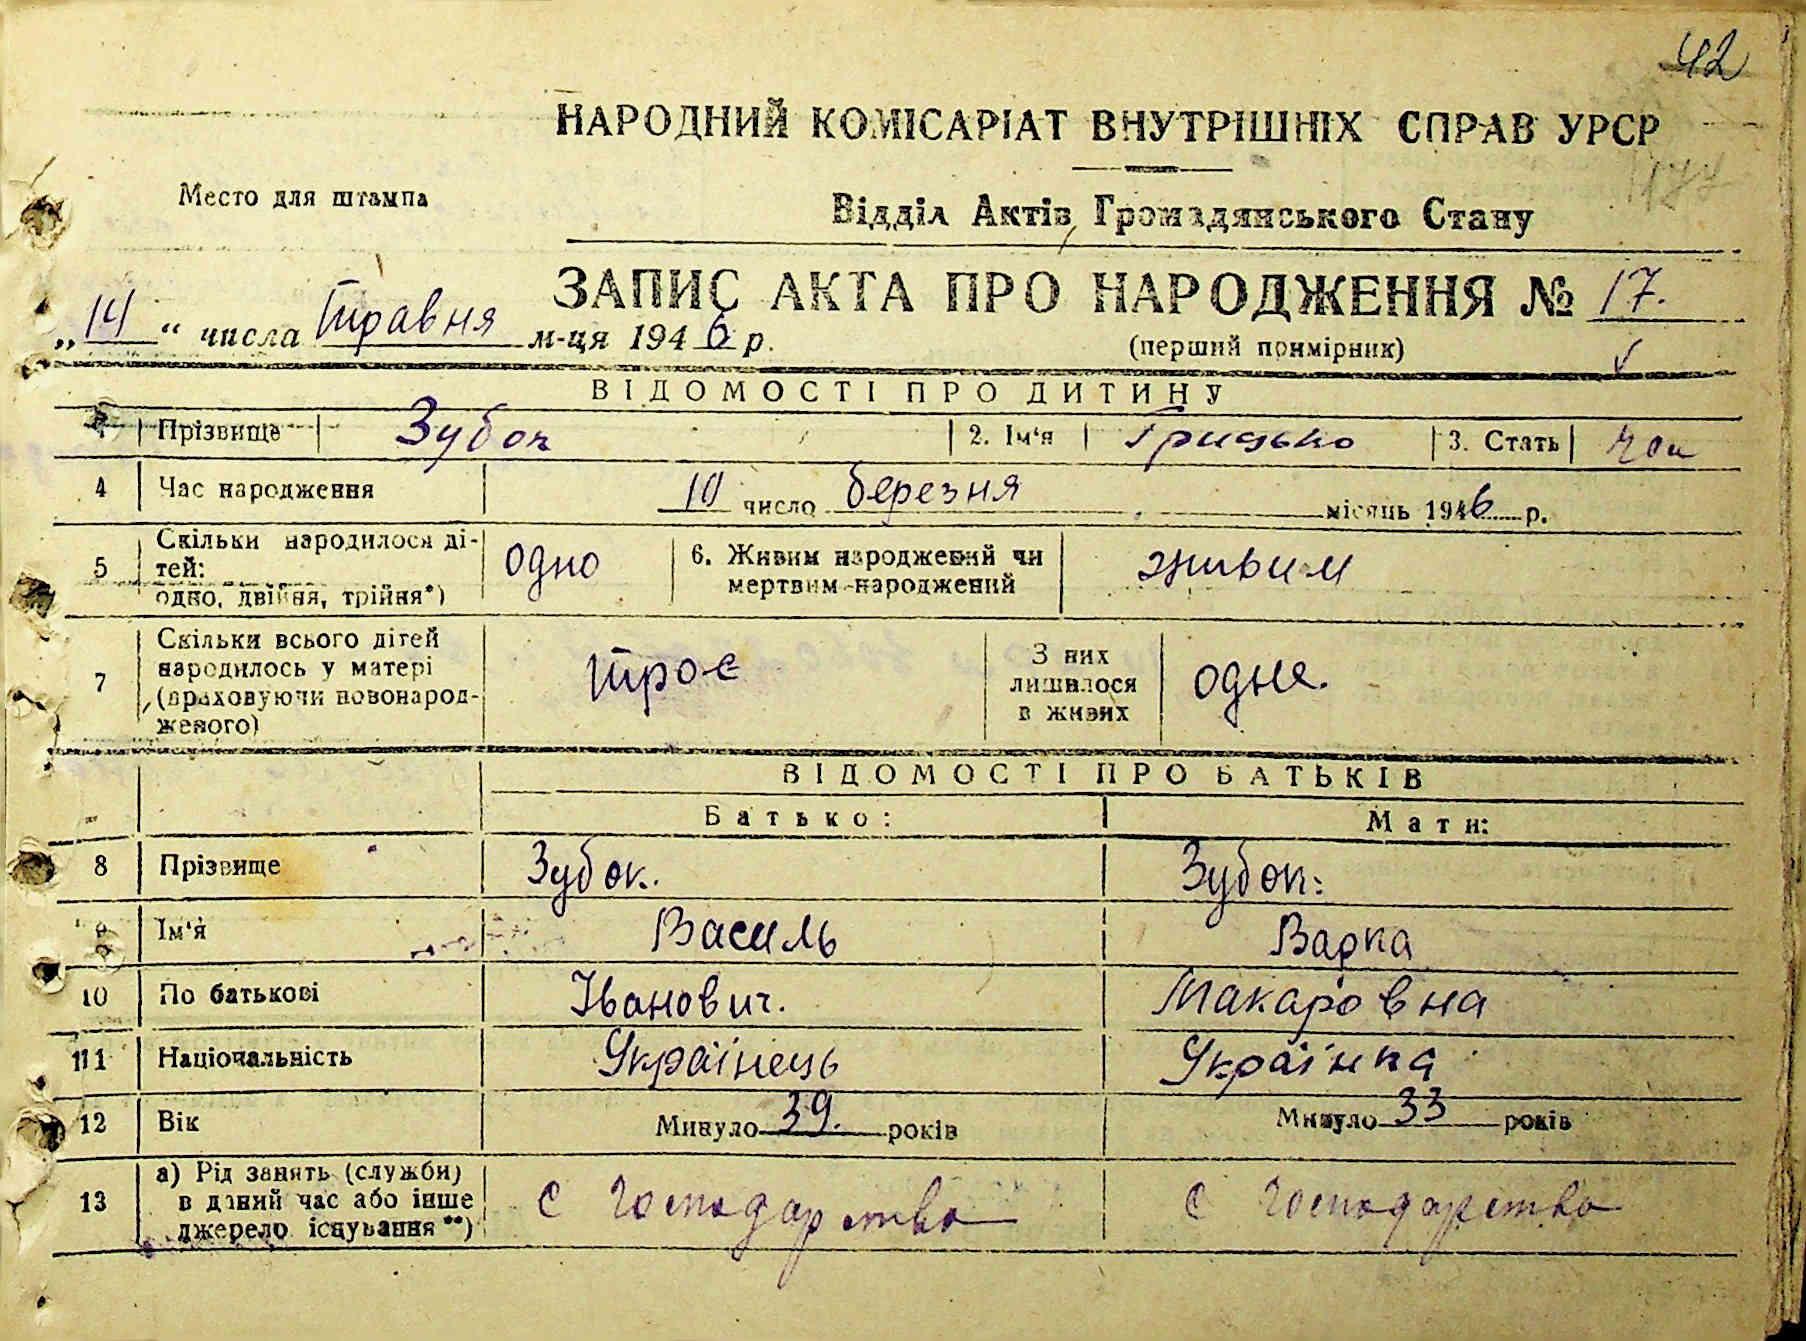 42
НАРОДНИЙ КОМІСАРІАТ ВНУТРІШНІХ СПРАВ УРСР
177
Место для штампа
Відділ Актів Громадянського Стану
ЗАПИС АКТА ПРО НАРОДЖЕННЯ № 17.
„14“ числа Травня м-ця 1946 р.
(перший примірник)
ВІДОМОСТІ ПРО ДИТИНУ
Прізвище Зубок 2. Ім'я Грицько 3. Стать чол
4 Час народження 10 число березня місяць 1946 р.
5 Скільки народилося ді-
тей:
одно, двійня, трійня*) одно 6. Живим народжений чи
мертвим народжений живим
7 Скільки всього дітей
народилось у матері
(враховуючи новонарод-
женого) троє З них
лишилося
в живих одне.
ВІДОМОСТІ ПРО БАТЬКІВ
Батько: Мати:
8 Прізвище Зубок. Зубок:
9 Ім'я Василь Варка
10 По батькові Іванович. Макаровна
11 Національність Українець Українка
12 Вік Минуло 39. років Минуло 33 років
13 а) Рід занять (служби)
в даний час або інше
джерело існування**) С господарство С господарство